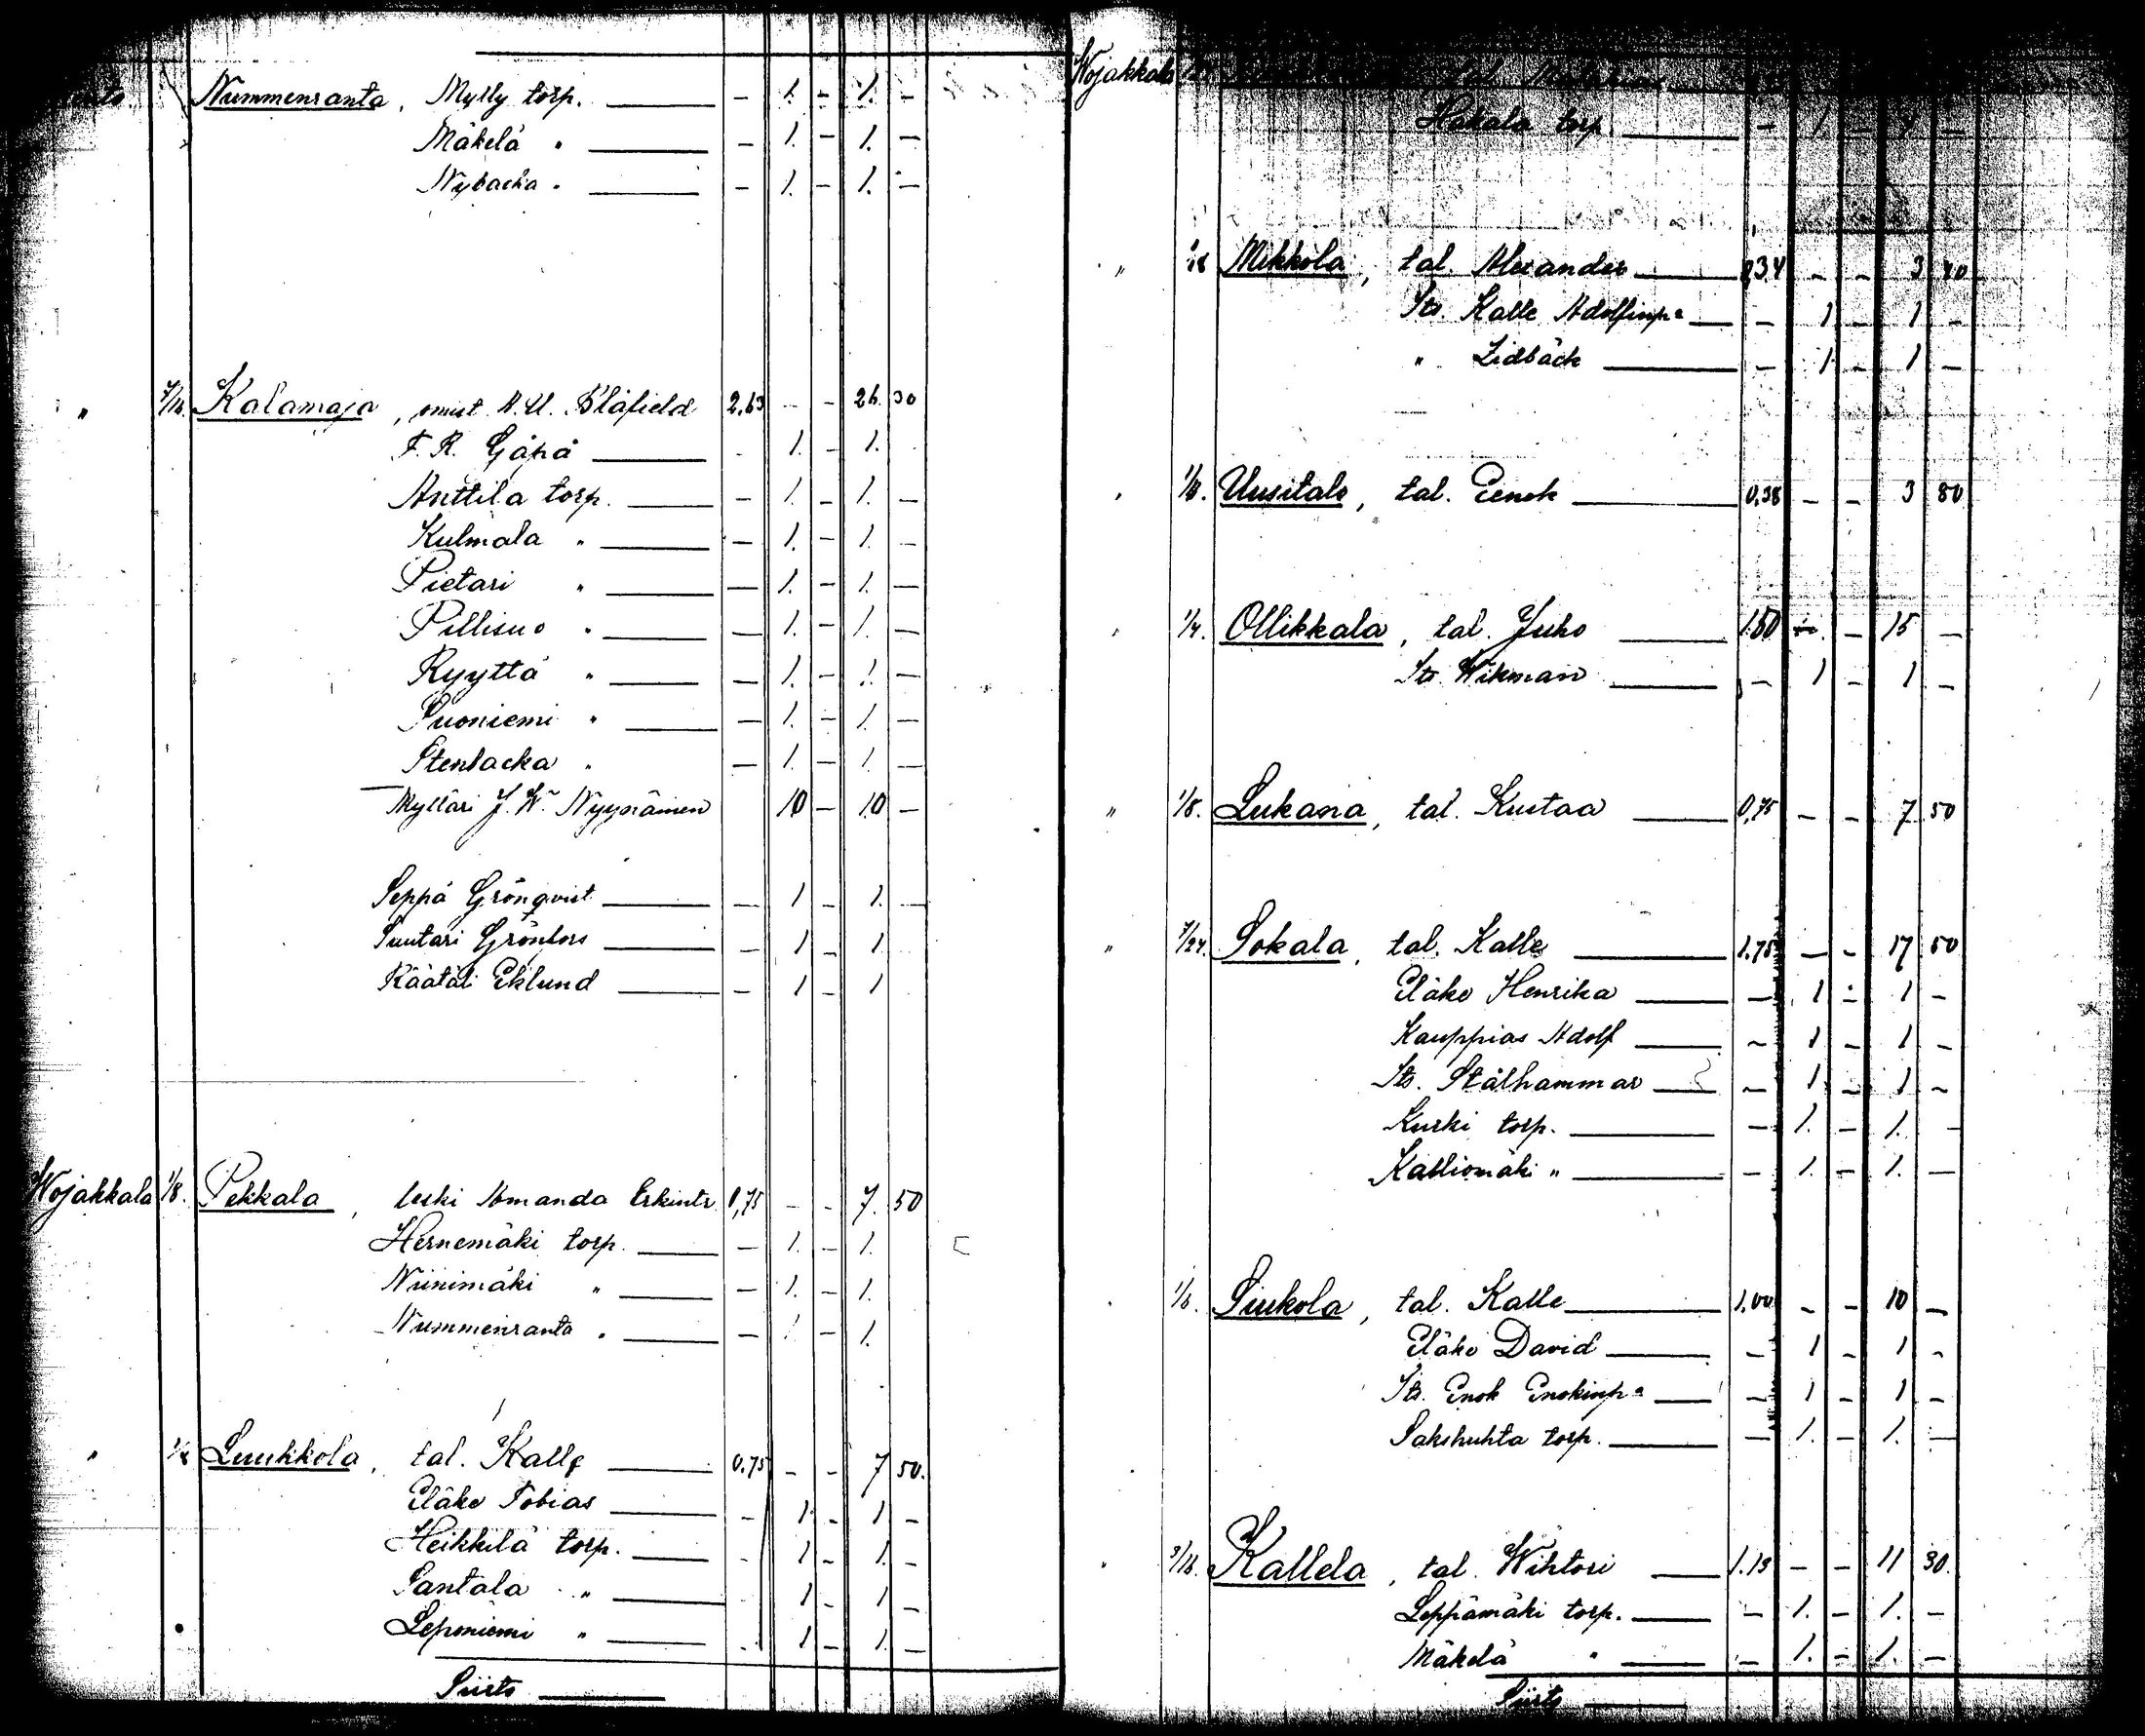 Nummenranta, Mylly torp. — – 1. – 1. –
Mäkelä " — – 1. – 1. –
Nybacka " — – 1. – 1. –
" 7/16 Kalamaja, omist. A. U. Blåfield 2,63 – – 26. 30
F. R. — 1. – 1.
Anttila torp. — – 1. – 1. –
Kulmala " — – 1. – 1. –
Pietari " — – 1. – 1. –
Pillisuo " — – 1. – 1. –
Ryyttä " — – 1. – 1. –
Suoniemi " — – 1. – 1. –
Stenbacka " – 1. – 1. –
Mylläri J. W. Nyynäinen 10 – 10 –
Seppä Grönqvist — – 1 – 1. –
Suutari Grönfors — – 1 – 1
Räätäli Eklund — – 1 – 1
Wojakkala 1/8. Pekkala, leski Amanda Erkintr. 0,75 – – 7. 50
Hernemäki torp. — – 1. – 1.
Niinimäki " — – 1. – 1.
Nummenranta " — – 1 – 1.
" 1/8 Luukkola, tal. Kalle — 0.75 – – 7 50.
Eläke Tobias — – 1. 1 –
Heikkilä torp. — – 1 – 1. –
Santala " — 1 1 –
Leponiemi " — 1 – 1. –
Siirto —
Wojakkala
Hakala torp. — – 1. – 1 –
" Mikkola, tal. Alexander — 0,34 – – 3 40
Its. Kalle Adolfinp:a — – 1 – 1 –
" Lidbäck — – 1 – 1 –
" Uusitalo, tal. Eenok — 0,38 – – 3 80
" 1/4. Ollikkala, tal. Juho — 1.50 – 15 –
Its. Wikman — – 1 – 1 –
" 1/8. Lukana, tal. Kustaa — 0,75 – – 7 50
" 7/24. Sokala, tal. Kalle — 1.75 – – 17 50
Eläke Henrika — – 1 – 1 –
Kauppias Adolf — – 1 – 1 –
Its. Stålhammar — – 1 – 1 –
Kurki torp. — – 1. – 1. –
Kalliomäki " — – 1. – 1. –
" 1/6. Siukola, tal. Kalle — 1.00 – – 10 –
Eläke David — – 1 – 1 –
Its. Enok Enokinp:a — – 1 – 1 –
Sakshuhta torp. — – 1. – 1. –
" 3/16. Kallela, tal. Wihtori — 1.13 – – 11 30.
Leppämäki torp. — – 1. – 1. –
Mäkelä " — – 1. – 1. –
Siirto —